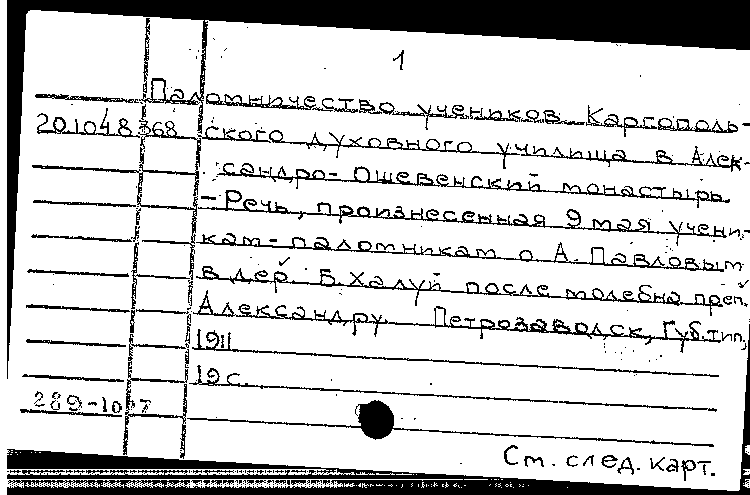 1
Паломничество учеников Каргополь-
201048368 ского духовного училища в Алек-
сандро-Ошевенский монастырь.
- Речь, произнесенная 9 мая учени-
кам-паломникам о А. Павловым
в дер. Б. Халуй после молебна преп.
Александру. Петрозаводск, Губ. тип,
1911.
19 с.
289-10
См. след. карт.